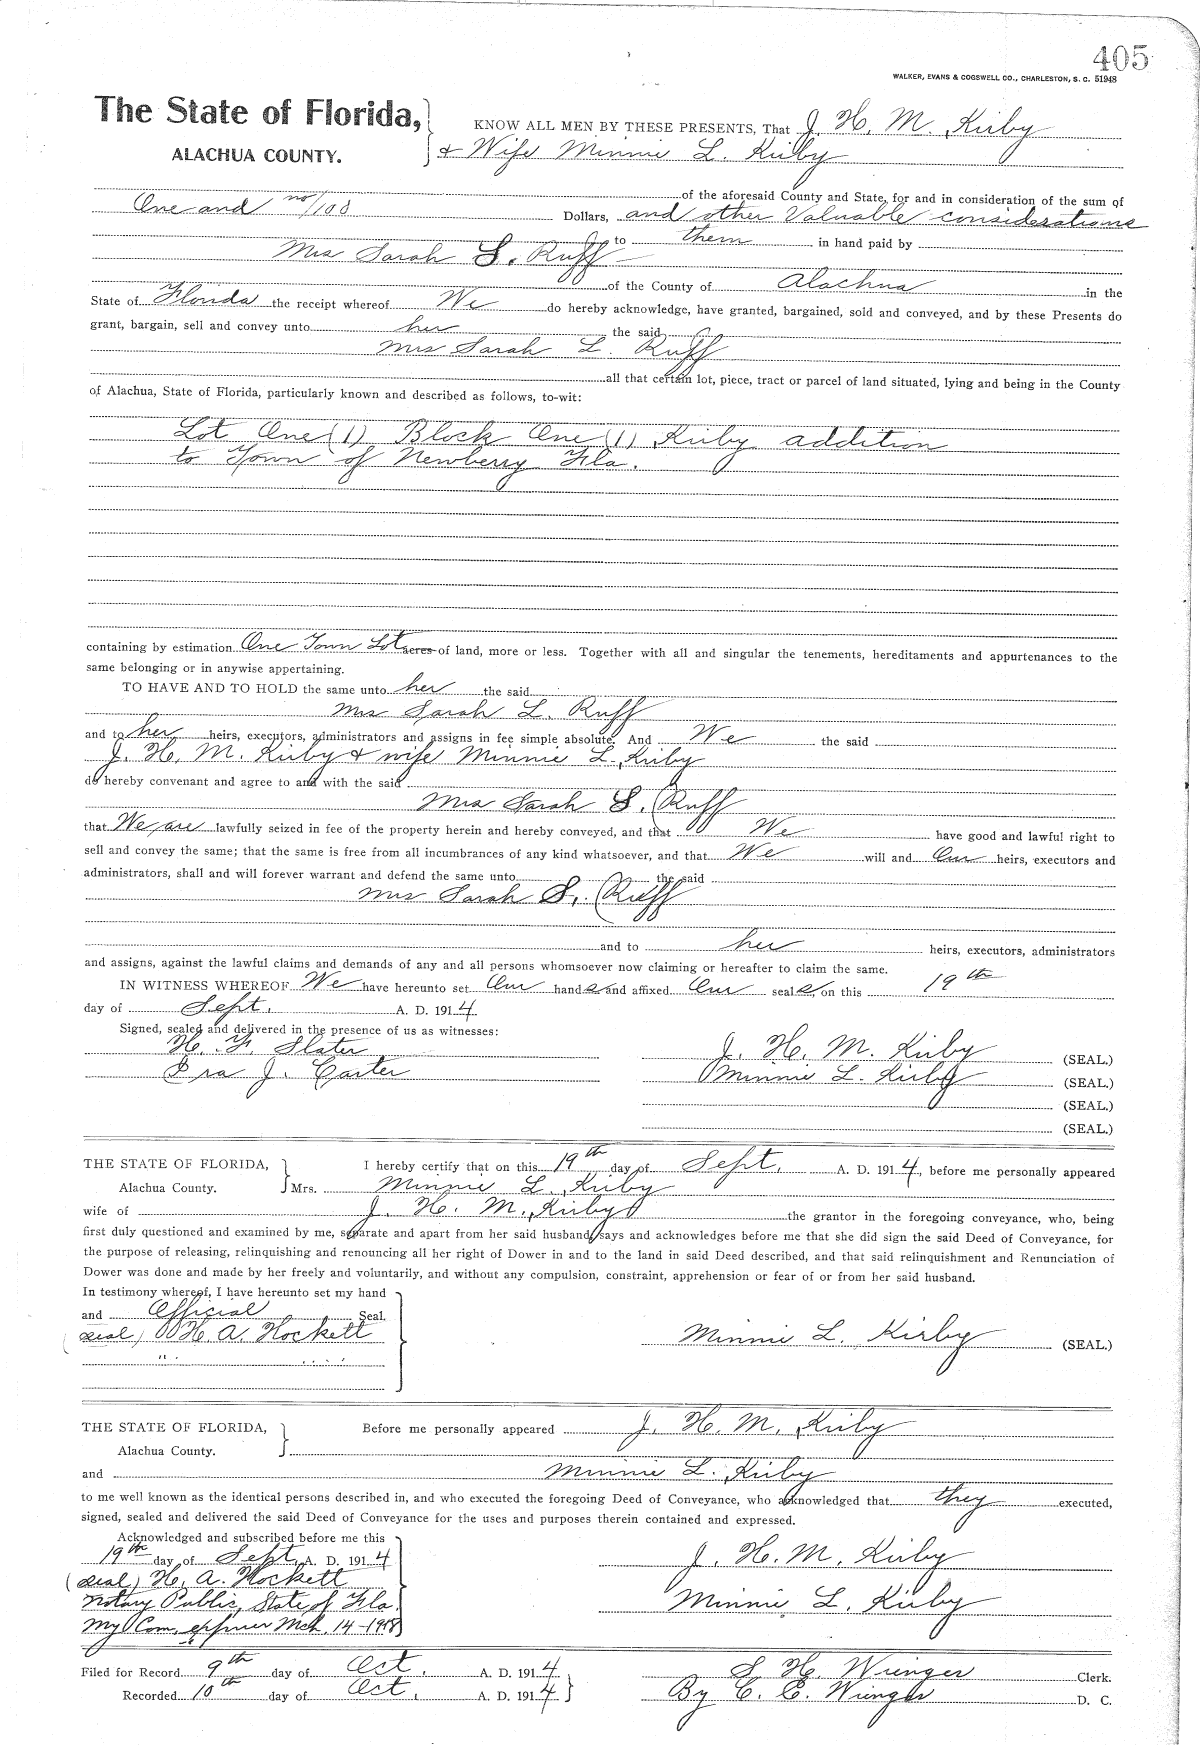 405
WALKER, EVANS & COGSWELL CO., CHARLESTON, S. C. 51948
The State of Florida,
ALACHUA COUNTY.
KNOW ALL MEN BY THESE PRESENTS, That J. H. M. Kirby
& Wife Minnie L. Kirby
of the aforesaid County and State, for and in consideration of the sum of
One and no/100 Dollars, and other Valuable considerations
to them in hand paid by
Mrs Sarah L. Ruff
of the County of Alachua in the
State of Florida the receipt whereof We do hereby acknowledge, have granted, bargained, sold and conveyed, and by these Presents do
grant, bargain, sell and convey unto her the said
Mrs Sarah L. Ruff
all that certain lot, piece, tract or parcel of land situated, lying and being in the County
of Alachua, State of Florida, particularly known and described as follows, to-wit:
Lot One (1) Block One (1) Kirby addition
to Town of Newberry Fla.
containing by estimation One Town Lot acres of land, more or less. Together with all and singular the tenements, hereditaments and appurtenances to the
same belonging or in anywise appertaining.
TO HAVE AND TO HOLD the same unto her the said
Mrs Sarah L. Ruff
and to her heirs, executors, administrators and assigns in fee simple absolute. And We the said
J. H. M. Kirby & wife Minnie L. Kirby
do hereby convenant and agree to and with the said
Mrs Sarah S. Ruff
that We are lawfully seized in fee of the property herein and hereby conveyed, and that We have good and lawful right to
sell and convey the same; that the same is free from all incumbrances of any kind whatsoever, and that We will and Our heirs, executors and
administrators, shall and will forever warrant and defend the same unto the said
Mrs Sarah S. Ruff
and to her heirs, executors, administrators
and assigns, against the lawful claims and demands of any and all persons whomsoever now claiming or hereafter to claim the same.
IN WITNESS WHEREOF We have hereunto set Our hands and affixed Our seals, on this 19th
day of Sept. A. D. 1914.
Signed, sealed and delivered in the presence of us as witnesses:
H. F. Slater
Ira J. Carter
J. H. M. Kirby (SEAL.)
Minnie L. Kirby (SEAL.)
(SEAL.)
(SEAL.)
THE STATE OF FLORIDA,
Alachua County.
I hereby certify that on this 19th day of Sept. A. D. 1914, before me personally appeared
Mrs. Minnie L. Kirby
wife of J. H. M. Kirby the grantor in the foregoing conveyance, who, being
first duly questioned and examined by me, separate and apart from her said husband, says and acknowledges before me that she did sign the said Deed of Conveyance, for
the purpose of releasing, relinquishing and renouncing all her right of Dower in and to the land in said Deed described, and that said relinquishment and Renunciation of
Dower was done and made by her freely and voluntarily, and without any compulsion, constraint, apprehension or fear of or from her said husband.
In testimony whereof, I have hereunto set my hand
and Official Seal.
(seal) H. A. Hockett
Minnie L. Kirby (SEAL.)
THE STATE OF FLORIDA,
Alachua County.
Before me personally appeared J. H. M. Kirby
and Minnie L. Kirby
to me well known as the identical persons described in, and who executed the foregoing Deed of Conveyance, who acknowledged that they executed,
signed, sealed and delivered the said Deed of Conveyance for the uses and purposes therein contained and expressed.
Acknowledged and subscribed before me this
19th day of Sept. A. D. 1914
(seal) H. A. Hockett
Notary Public, State of Fla.
My Com. expires Mch. 14-1918
J. H. M. Kirby
Minnie L. Kirby
Filed for Record 9th day of Oct. A. D. 1914
Recorded 10th day of Oct. A. D. 1914
S. H. Wienges Clerk.
By C. E. Wienges D. C.